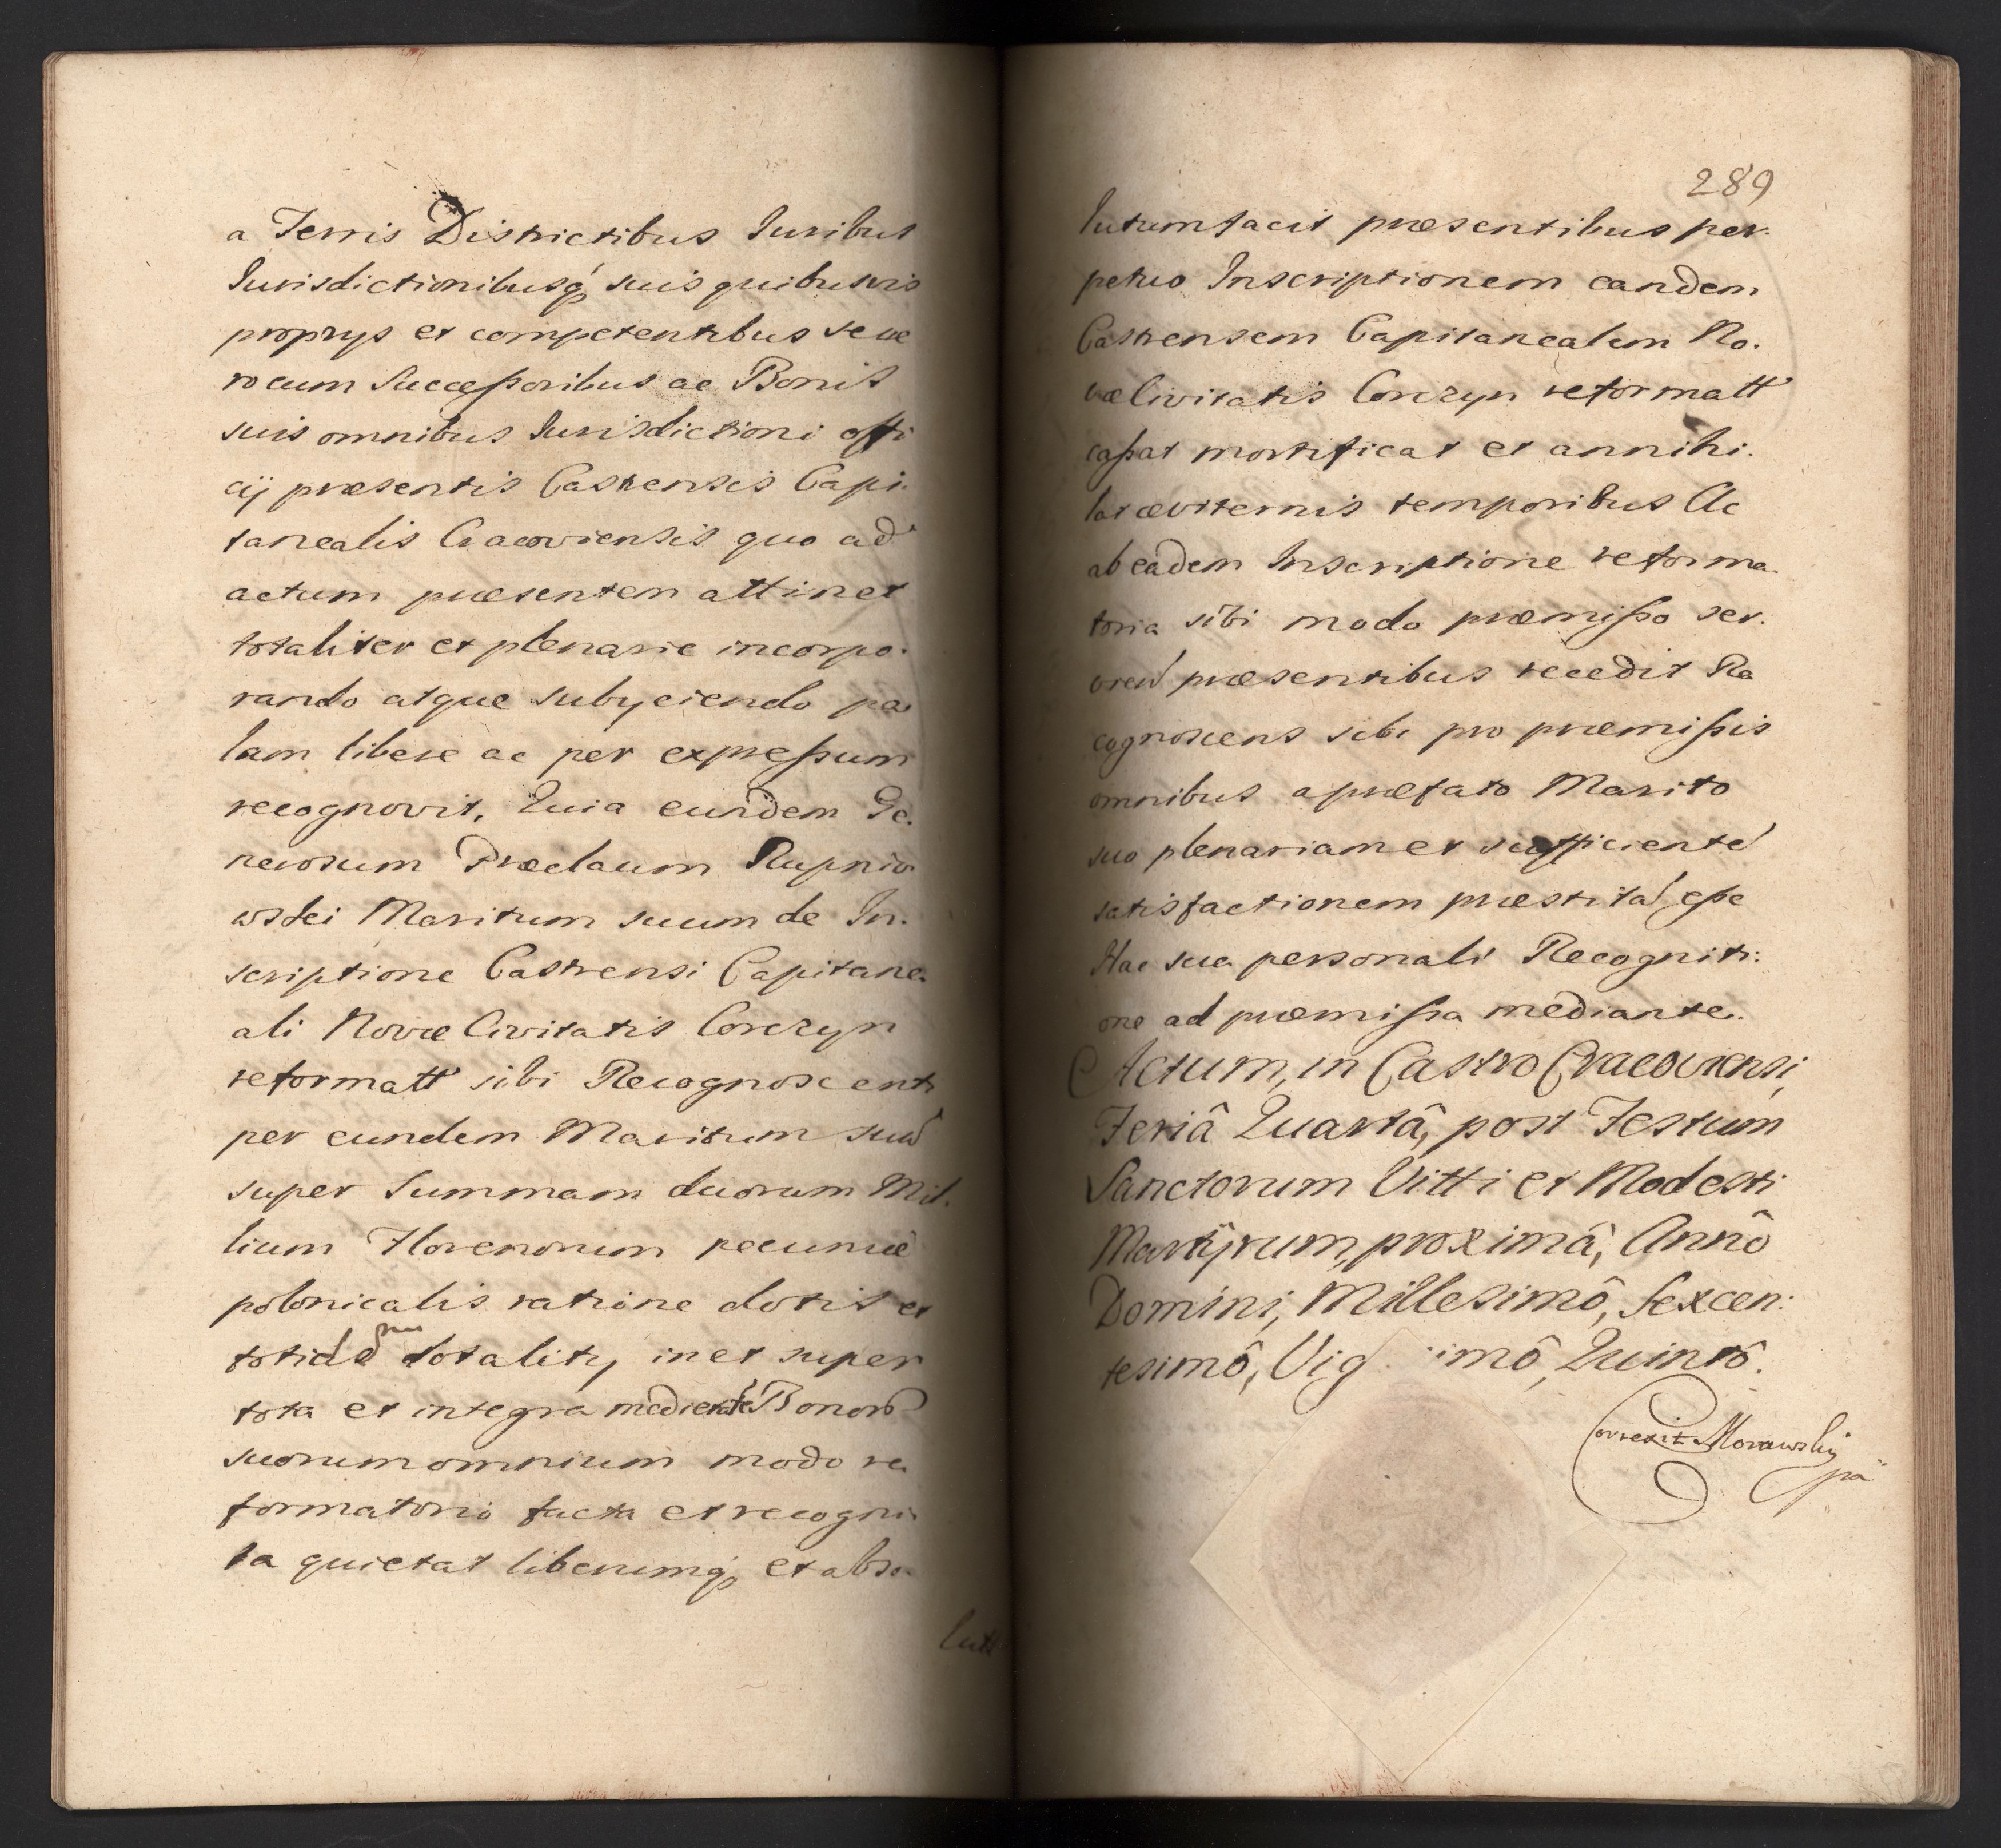 a Terris Districtibus Juribus
Jurisdictionibusq3 suis quibusvis
proprys et competentibus se ve
ro cum Successoribus ac Bonis
suis omnibus Jurisdictioni offi
cij præsentis Castrensis Capi.
tanealis Cracoviensis quo ad
actum præsentem attinet
totaliter et plenarie incorpo.
rando atque subyciendo pa
lam libere ac per expressum
recognovit, Quia eundem Ge.
nerosum Præclaum Rupnio
wski Maritum suum de In.
scriptione Castrensi Capitane.
ali Novæ Civitatis Corczyn
reformatt sibi Recognoscenti
per eundem Maritum suū
super Summam duorum Mil.
lium Florenorum pecuniæ
polonicalis ratione dotis et
totidē dotality, in et super
tota et integra medietate Bonorū
suorum omnium modo re
formatorio facta et recogni
ta quietat liberumq3 et abso.
lut
289
lutum facit præsentibus per.
petuo Inscriptionem eandem
Castrensem Capitanealem No.
væ Civitatis Corczyn reformatt
cassat mortificat et annihi.
lat æviternis temporibus Ac
ab eadem Inscriptione reforma.
toria sibi modo præmisso ser.
præsentibus recedit Re
cognoscens sibi pro præmissis
omnibus a præfato Marito
suo plenariam et sufficientē
satisfactionem præstitā esse
Hac sua personali Recogniti:
one ad præmissa mediante.
Actum, in Castro Cracoviensi,
Feriâ Quartâ, post Festum
Sanctorum Vitti et Modesti
Martÿrum, proximâ, Annô
Domini, Millesimô, Sexcen:
tesimô, Vig imô, Quintô.
Correxit Morawsky